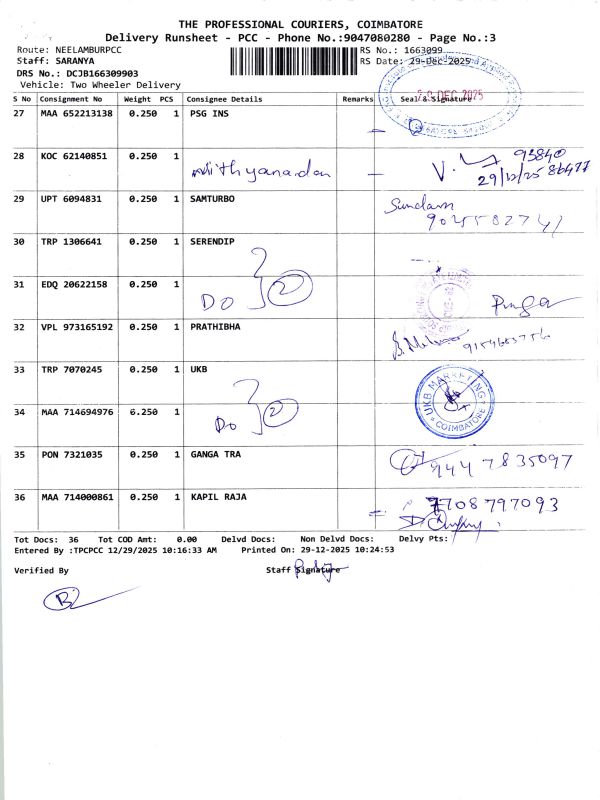 THE PROFESSIONAL COURIERS, COIMBATORE
Delivery Runsheet - PCC - Phone No.:9047080280 - Page No.:3
Route: NEELAMBURPCC RS No.: 1663099
Staff: SARANYA RS Date: 29-Dec-2025
DRS No.: DCJB166309903
Vehicle: Two Wheeler Delivery
S No Consignment No Weight PCS Consignee Details Remarks Seal & Signature
DEC 2025
27 MAA 652213138 0.250 1 PSG INS
28 KOC 62140851 0.250 1 Nithyanandan 93840
29/12/25 86477
29 UPT 6094831 0.250 1 SAMTURBO Sundaram
9025582741
30 TRP 1306641 0.250 1 SERENDIP
31 EDQ 20622158 0.250 1 Do 2
32 VPL 973165192 0.250 1 PRATHIBHA
33 TRP 7070245 0.250 1 UKB UKB MARKETING COIMBATORE
34 MAA 714694976 6.250 1 Do 2
35 PON 7321035 0.250 1 GANGA TRA 9447835097
36 MAA 714000861 0.250 1 KAPIL RAJA 7708797093
Tot Docs: 36 Tot COD Amt: 0.00 Delvd Docs: Non Delvd Docs: Delvy Pts:
Entered By :TPCPCC 12/29/2025 10:16:33 AM Printed On: 29-12-2025 10:24:53
Verified By Staff Signature